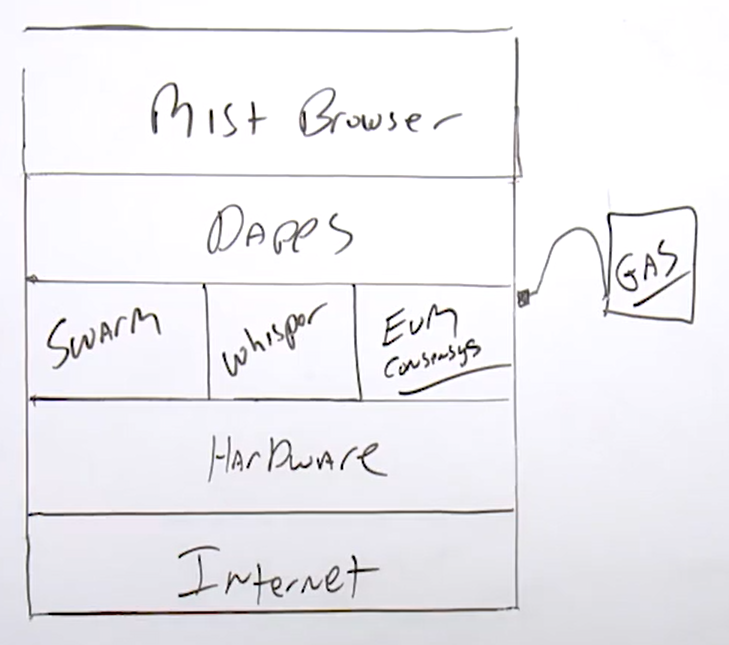 Mist Browser
DAPPS
GAS
SWARM
Whisper
EVM
Consensys
HARDware
Internet